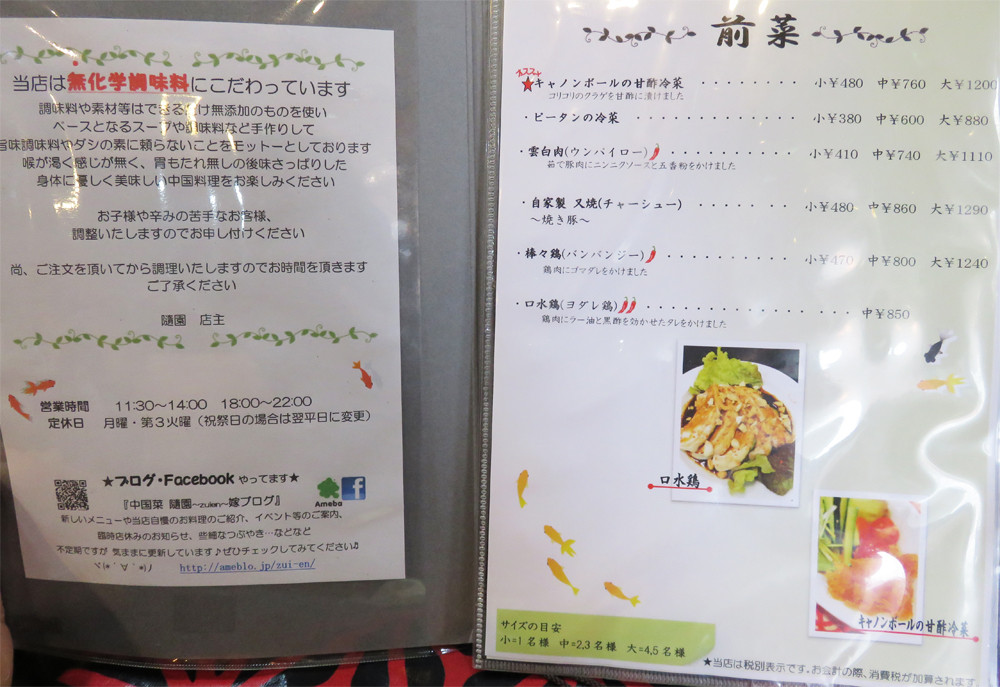 当店は無化学調味料にこだわっています
調味料や素材等はできるだけ無添加のものを使い
ベースとなるスープや調味料など手作りして
旨味調味料やダシの素に頼らないことをモットーとしております
喉が渇く感じが無く、胃もたれ無しの後味さっぱりした
身体に優しく美味しい中国料理をお楽しみください
お子様や辛みの苦手なお客様、
調整いたしますのでお申し付けください
尚、ご注文を頂いてから調理いたしますのでお時間を頂きます
ご了承ください
隨園 店主
営業時間 11:30〜14:00 18:00〜22:00
定休日 月曜・第3火曜（祝祭日の場合は翌平日に変更）
★ブログ・Facebook やってます★
Ameba
『中国菜 隨園~zuien~嫁ブログ』
新しいメニューや当店自慢のお料理のご紹介、イベント等のご案内、
臨時店休みのお知らせ、些細なつぶやき…などなど
不定期ですが 気ままに更新しています♪ぜひチェックしてみてください♫
http://ameblo.jp/zui-en/
前菜
オススメ
★キャノンボールの甘酢冷菜 ・・・・・・・・ 小￥480 中￥760 大￥1200
コリコリのクラゲを甘酢に漬けました
・ピータンの冷菜 ・・・・・・・・・・・・・ 小￥380 中￥600 大￥880
・雲白肉(ウンパイロー) ・・・・・・・・・・ 小￥410 中￥740 大￥1110
茹で豚肉にニンニクソースと五香粉をかけました
・自家製 叉焼(チャーシュー) ・・・・・・・ 小￥480 中￥860 大￥1290
〜焼き豚〜
・棒々鶏(バンバンジー) ・・・・・・・・・・ 小￥470 中￥800 大￥1240
鶏肉にゴマダレをかけました
・口水鶏(ヨダレ鶏) ・・・・・・・・・・・・・・・ 中￥850
鶏肉にラー油と黒酢を効かせたタレをかけました
口水鶏
キャノンボールの甘酢冷菜
サイズの目安
小=1名様 中=2,3名様 大=4,5名様
★当店は税別表示です。お会計の際、消費税が加算されます。